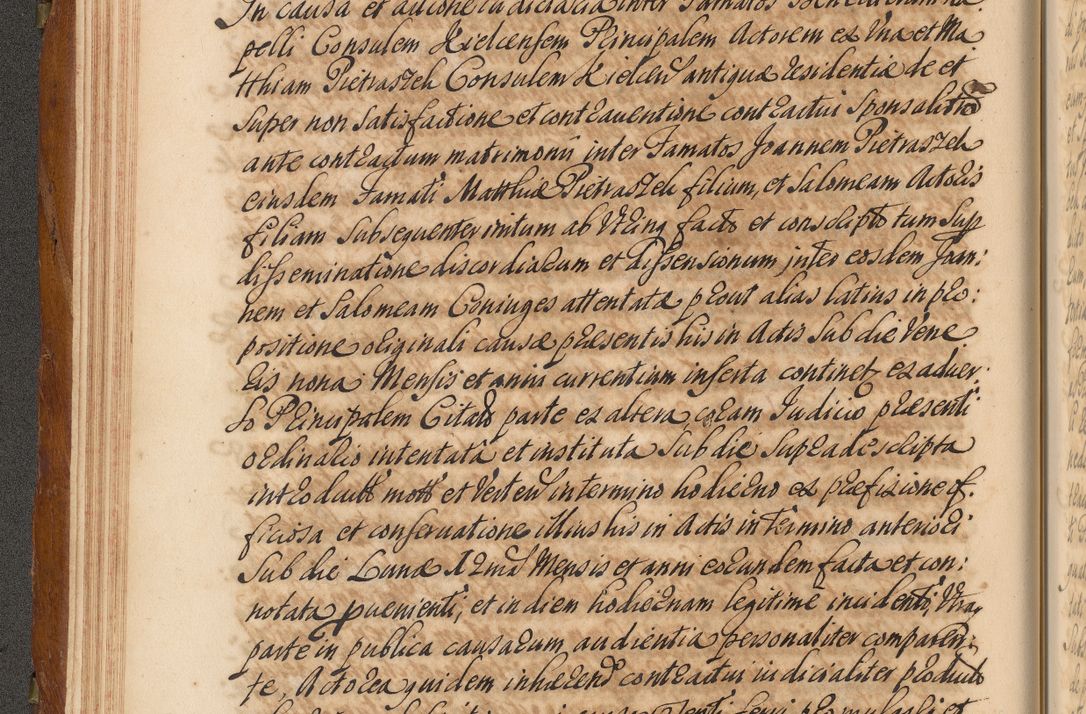 In causa et actione iudiciaria inter Famatos
pelli Consulem Kielcensem Principalem Actorem ex Una et Ma
tthiam Pietraszek Consulem Kielceñ antiqua residentia de et
super non satisfactione et contraventione contractui sponsalitio
ante contractum matrimonii inter Famatos Joannem Pietraszek
eiusdem Famati Matthiæ Pietraszek filium, et Salomeam Actoris
filiam subsequenter initum ab Utrinq facto et conscripto tum Supp
disseminatione discordiarum et dissensionum inter eosdem Joan:
nem et Salomeam Coniuges attentata prout alias latius in pro:
positione originali causæ præsentis his in Actis sub die Vene
ris nona Mensis et anni currentium inserta continet ex adver:
so Principalem Citato parte ex altera, coram Iudicio præsenti
ordinario intentata et instituta sub die supra descripta
introductt mott et Verteñ in termino hodierno ex præfixione of.
ficiosa et conservatione illius his in Actis in Termino anteriori
sub die Lunæ XIIma Mensis et anni eorundem facta et con:
notata puenienti, et in diem hodiernam legitime incidenti, Utraq
parte in publica causarum audientia personaliter comparen:
te, Actorea quidem inhærend contractui iudicialiter producto